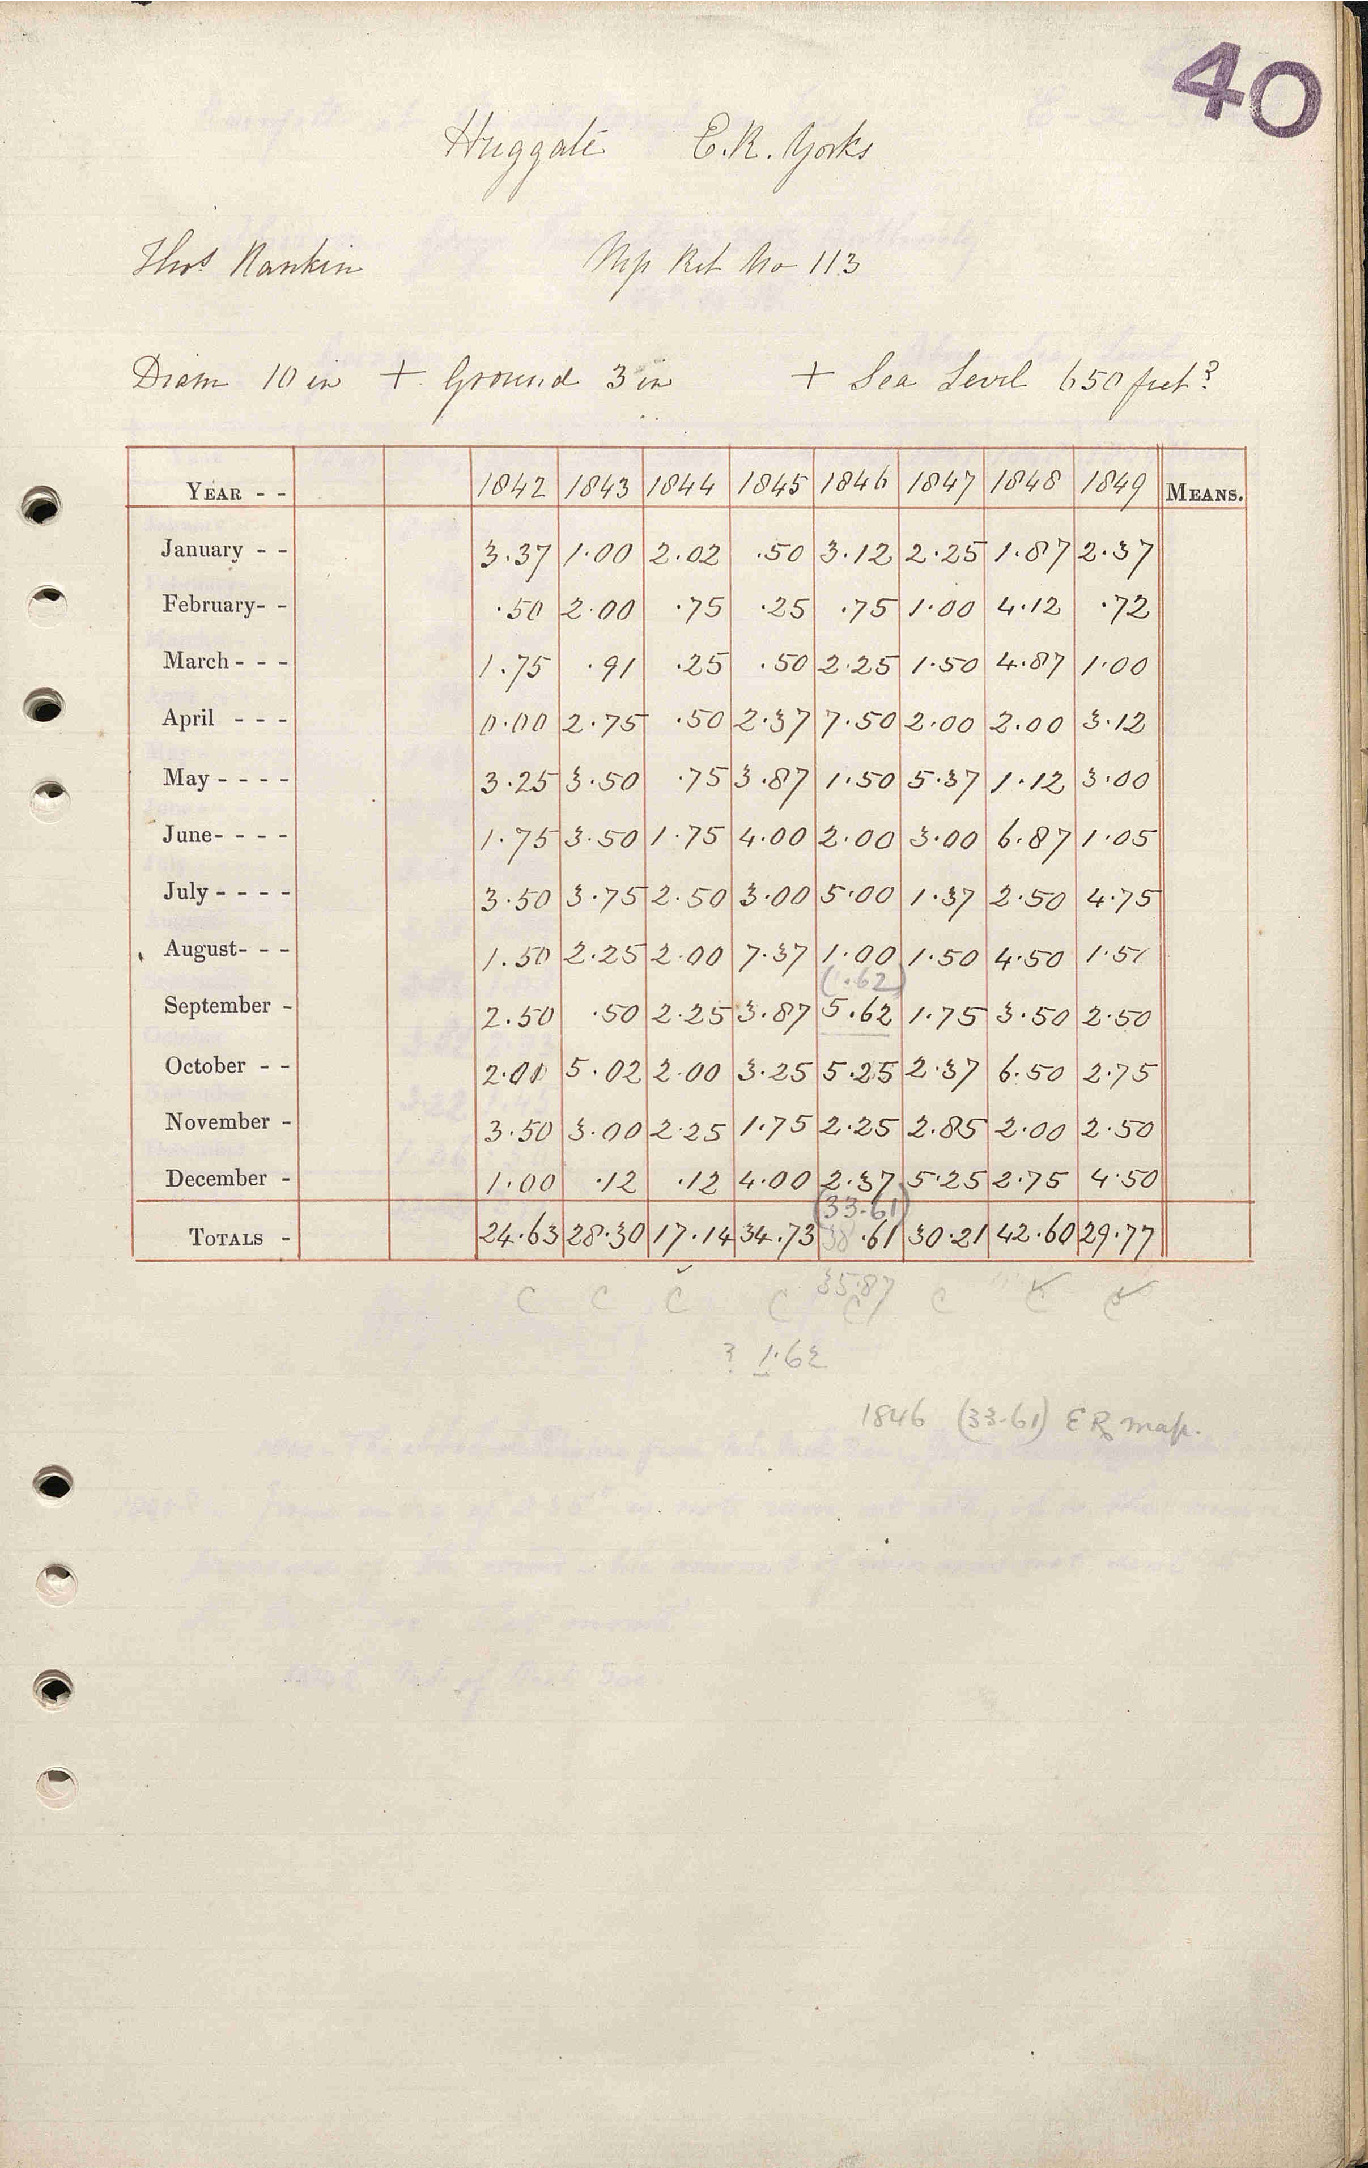 40
Huggate E.R. Yorks
Thos Rankin
No 113
Diam 10 in + Ground 3 in + Sea Level 650 feet?
YEAR - - 1842 1843 1844 1845 1846 1847 1848 1849 MEANS.
January - - 3.37 1.00 2.02 .50 3.12 2.25 1.87 2.37
February- - .50 2.00 .75 .25 .75 1.00 4.12 .72
March - - - 1.75 .91 .25 .50 2.25 1.50 4.87 1.00
April - - - 0.00 2.75 .50 2.37 7.50 2.00 2.00 3.12
May - - - - 3.25 3.50 .75 3.87 1.50 5.37 1.12 3.00
June- - - - 1.75 3.50 1.75 4.00 2.00 3.00 6.87 1.05
July - - - - 3.50 3.75 2.50 3.00 5.00 1.37 2.50 4.75
August- - - 1.50 2.25 2.00 7.37 1.00 1.50 4.50 1.51
(1.62)
September - 2.50 .50 2.25 3.87 5.62 1.75 3.50 2.50
October - - 2.01 5.02 2.00 3.25 5.25 2.37 6.50 2.75
November - 3.50 3.00 2.25 1.75 2.25 2.85 2.00 2.50
December - 1.00 .12 .12 4.00 2.37 5.25 2.75 4.50
(33.61)
TOTALS - 24.63 28.30 17.14 34.73 38.61 30.21 42.60 29.77
35.87
C C C C C C C C
? 1.62
1846 (33.61) ER map.